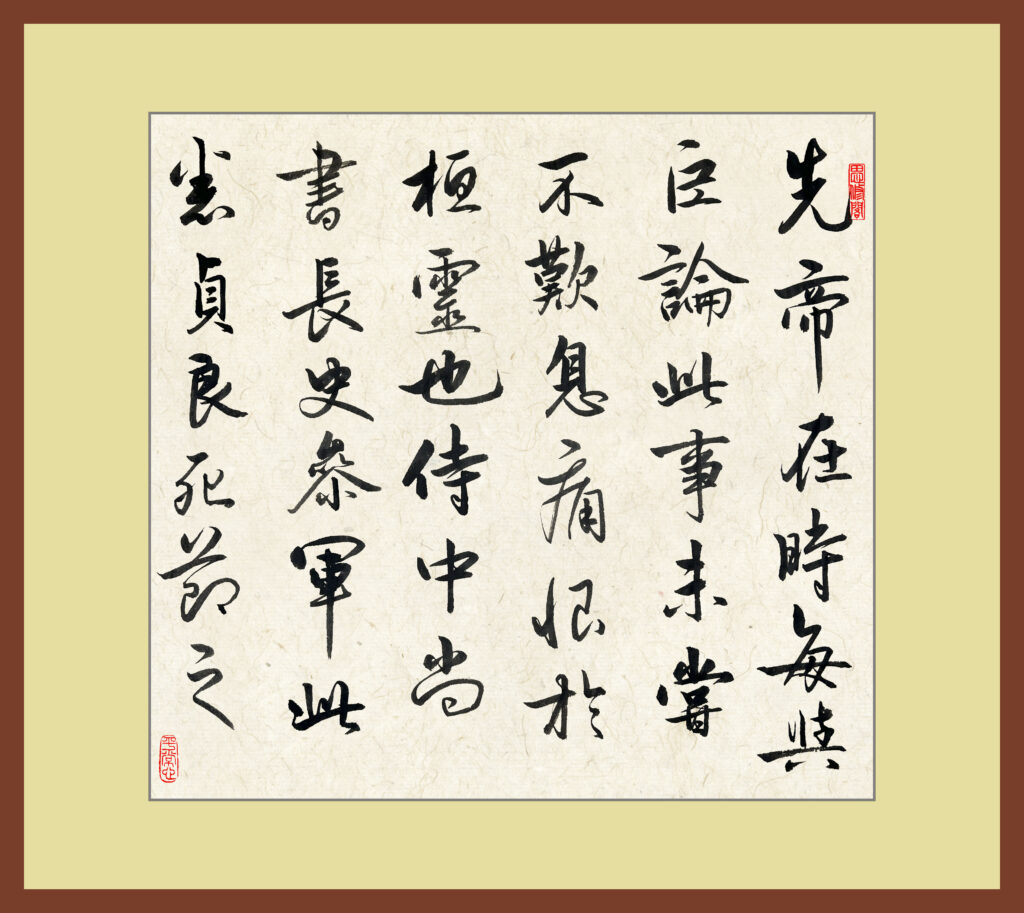 先帝在時每與
臣論此事未嘗
不歎息痛恨於
桓靈也侍中尚
書長史參軍此
悉貞良死節之